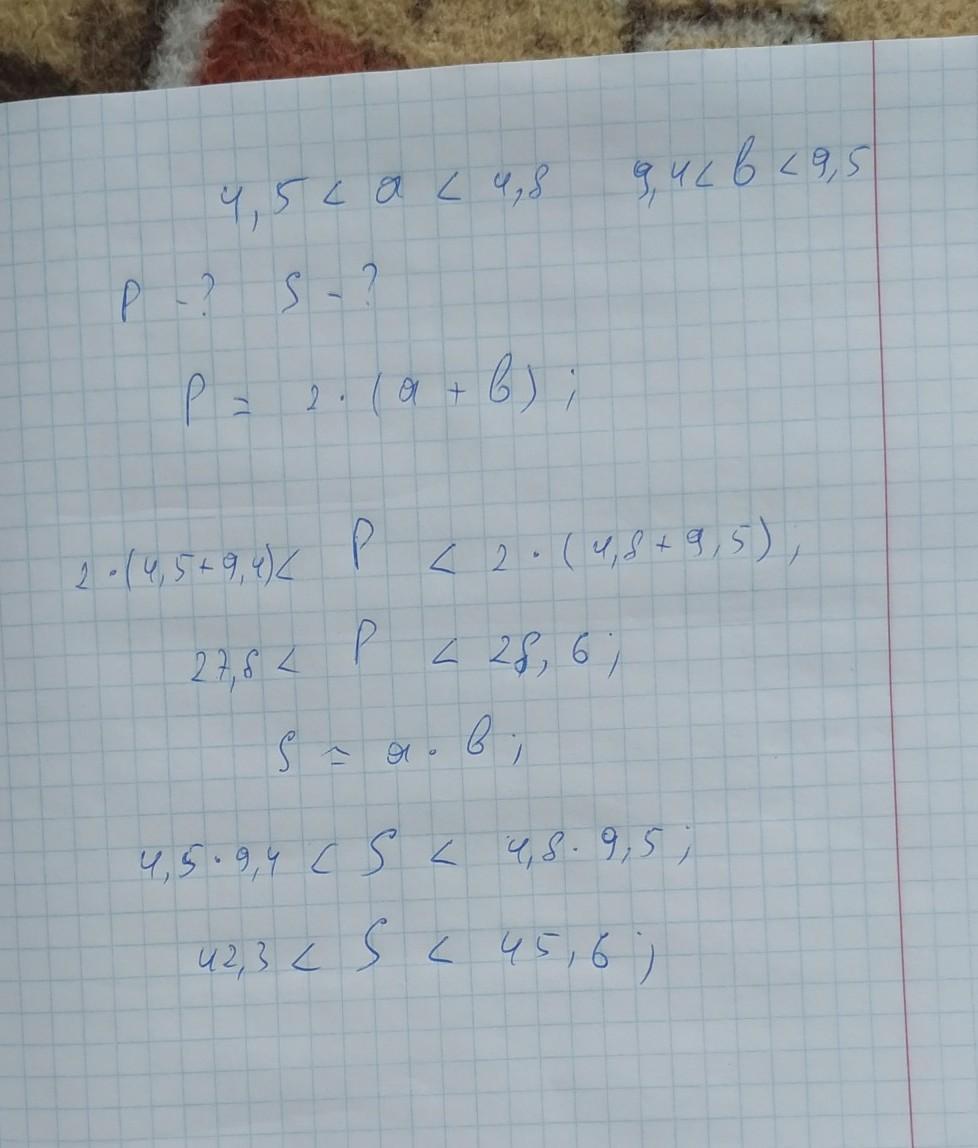 4,5 < a < 4,8 9,4 < b < 9,5
P - ? S - ?
P = 2 · (a + b) ;
2 · (4,5 + 9,4) < P < 2 · (4,8 + 9,5) ;
27,8 < P < 28,6 ;
S = a · b ;
4,5 · 9,4 < S < 4,8 · 9,5 ;
42,3 < S < 45,6 ;